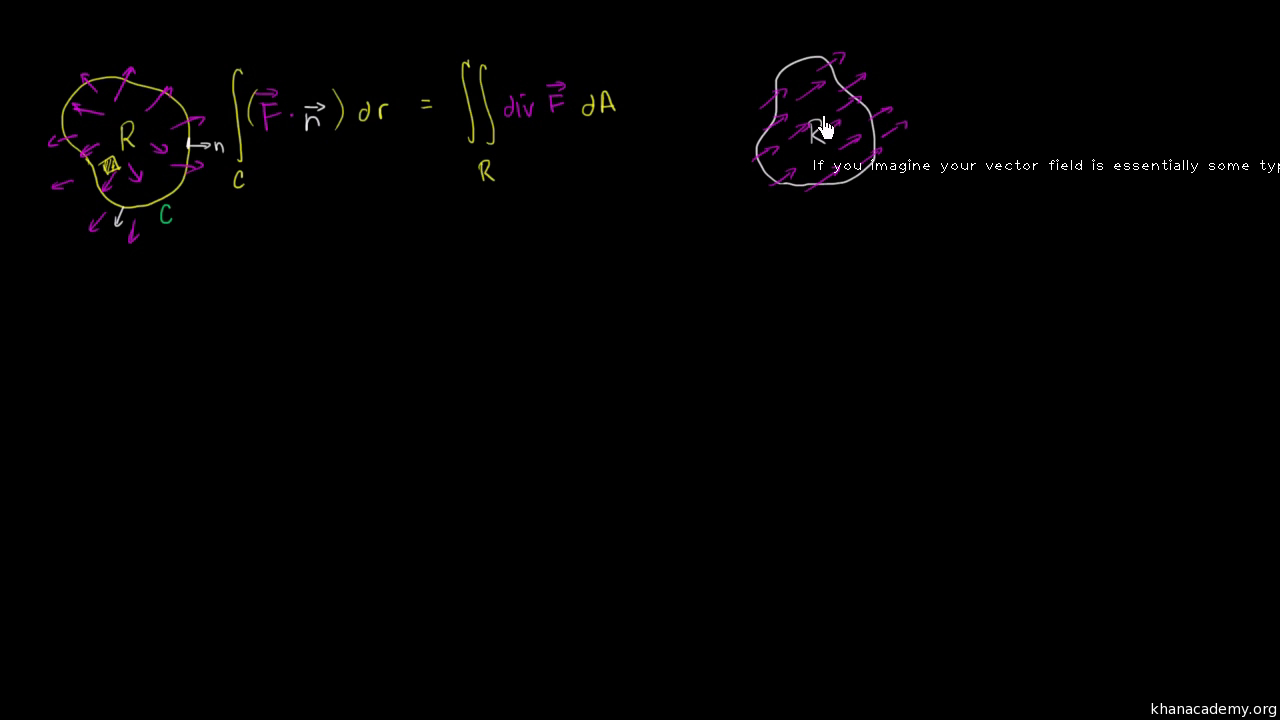 R
n
C
∫ (F⃗ · n⃗) dr = ∬ div F⃗ dA
C
R
R
If you imagine your vector field is essentially some typ
khanacademy.org